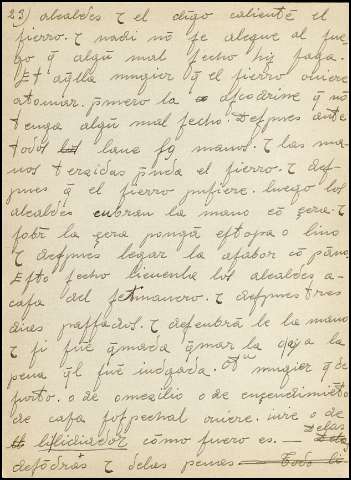 23) alcaldes τ el clĩgo caliente el
fierro. τ nadi nõ se alegue al fue-
go q̃ algũ mal fecho hi faga.
Et aq̃lla mugier q̃ el fierro ouiere
a tomar. p̃mero la escodrine q̃ nõ
tenga algũ mal fecho. Despues ante
todos laue sus manos. τ las ma-
nos tersidas p̃nda el fierro. τ des-
pues q̃ el fierro pusiere. luego los
alcaldes cubran la mano cõ çera. τ
sobr̃ la çera pongã estopa o lino
τ despues legar la a sabor cõ paño.
Esto fecho lieuenla los alcaldes a-
casa del . τ despues tres
dias passados. τ descubrã le la mano
τ si fuẽ q̃mada q̃mar la o aya la
pena q̃l fuẽ iudgada. A mugier q̃ de
furto. o de omesilio o de encendimiẽto
de casa sospechal ouiere. iure o de
lidiador como fuero es. — Delas
defõdras τ delas penas. — Todo